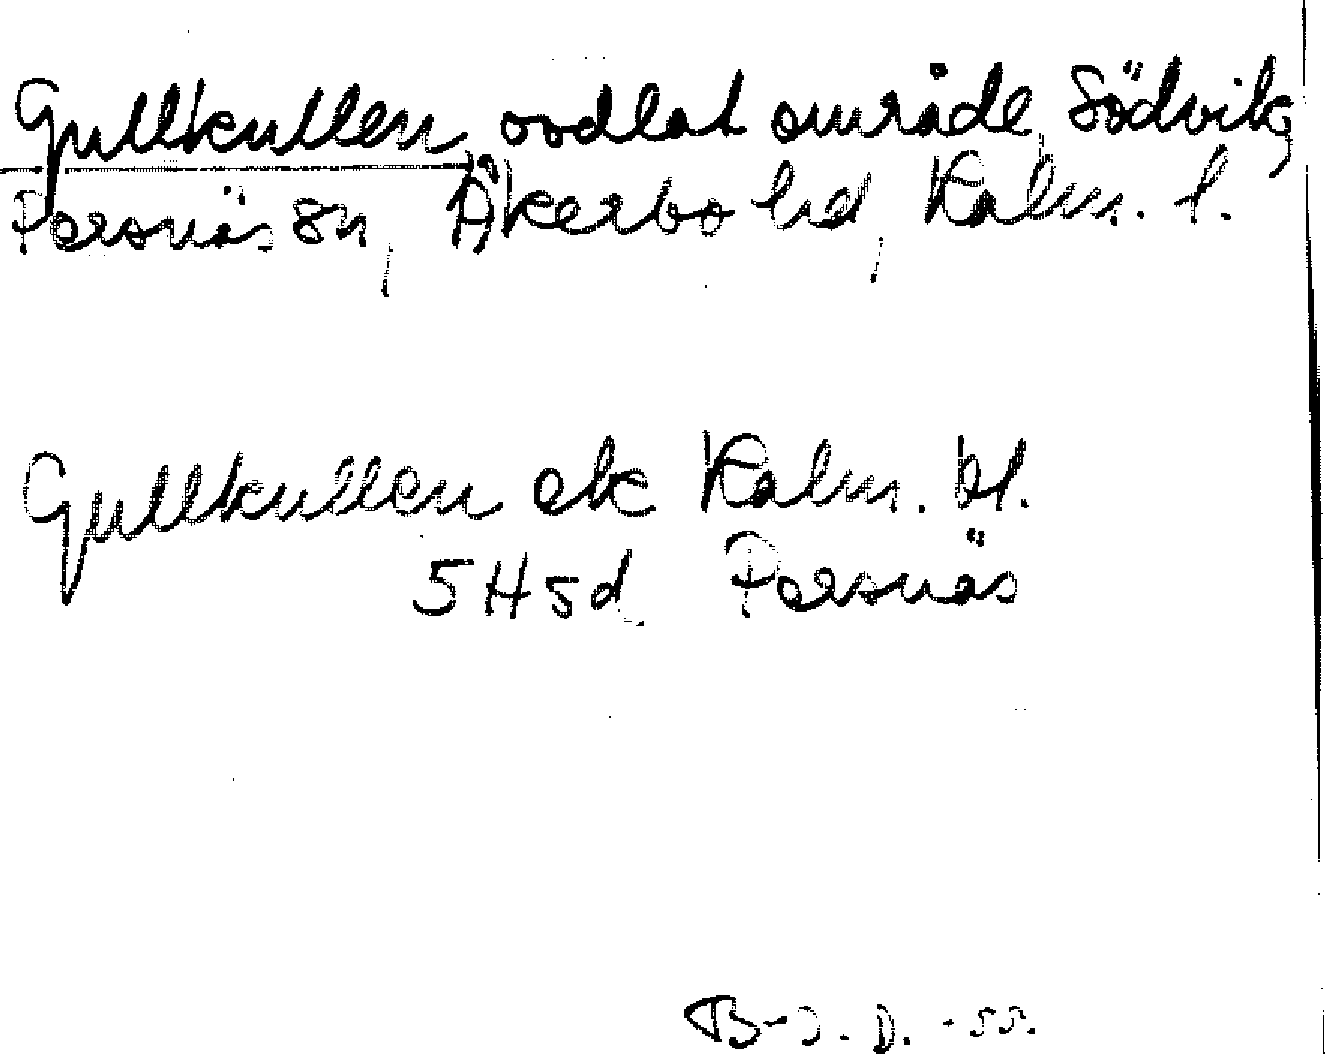 Gullkullen, oodlat område, Södvik,
Persnäs sn, Åkerbo hd, Kalm. l.
Gullkullen ek Kalm. bl.
5H5d Persnäs
B-J. D. -55.